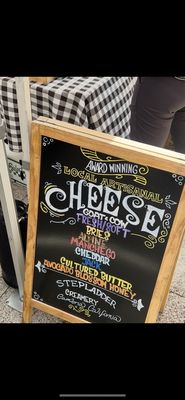 AWARD WINNING
LOCAL ARTISANAL
CHEESE
GOAT & COW
FRESH/SOFT
BRIES
ALPINE
MANCHEGO
CHEDDAR
JACK
CULTURED BUTTER
AVOCADO BLOSSOM HONEY
STEPLADDER
CREAMERY
Cambria, California